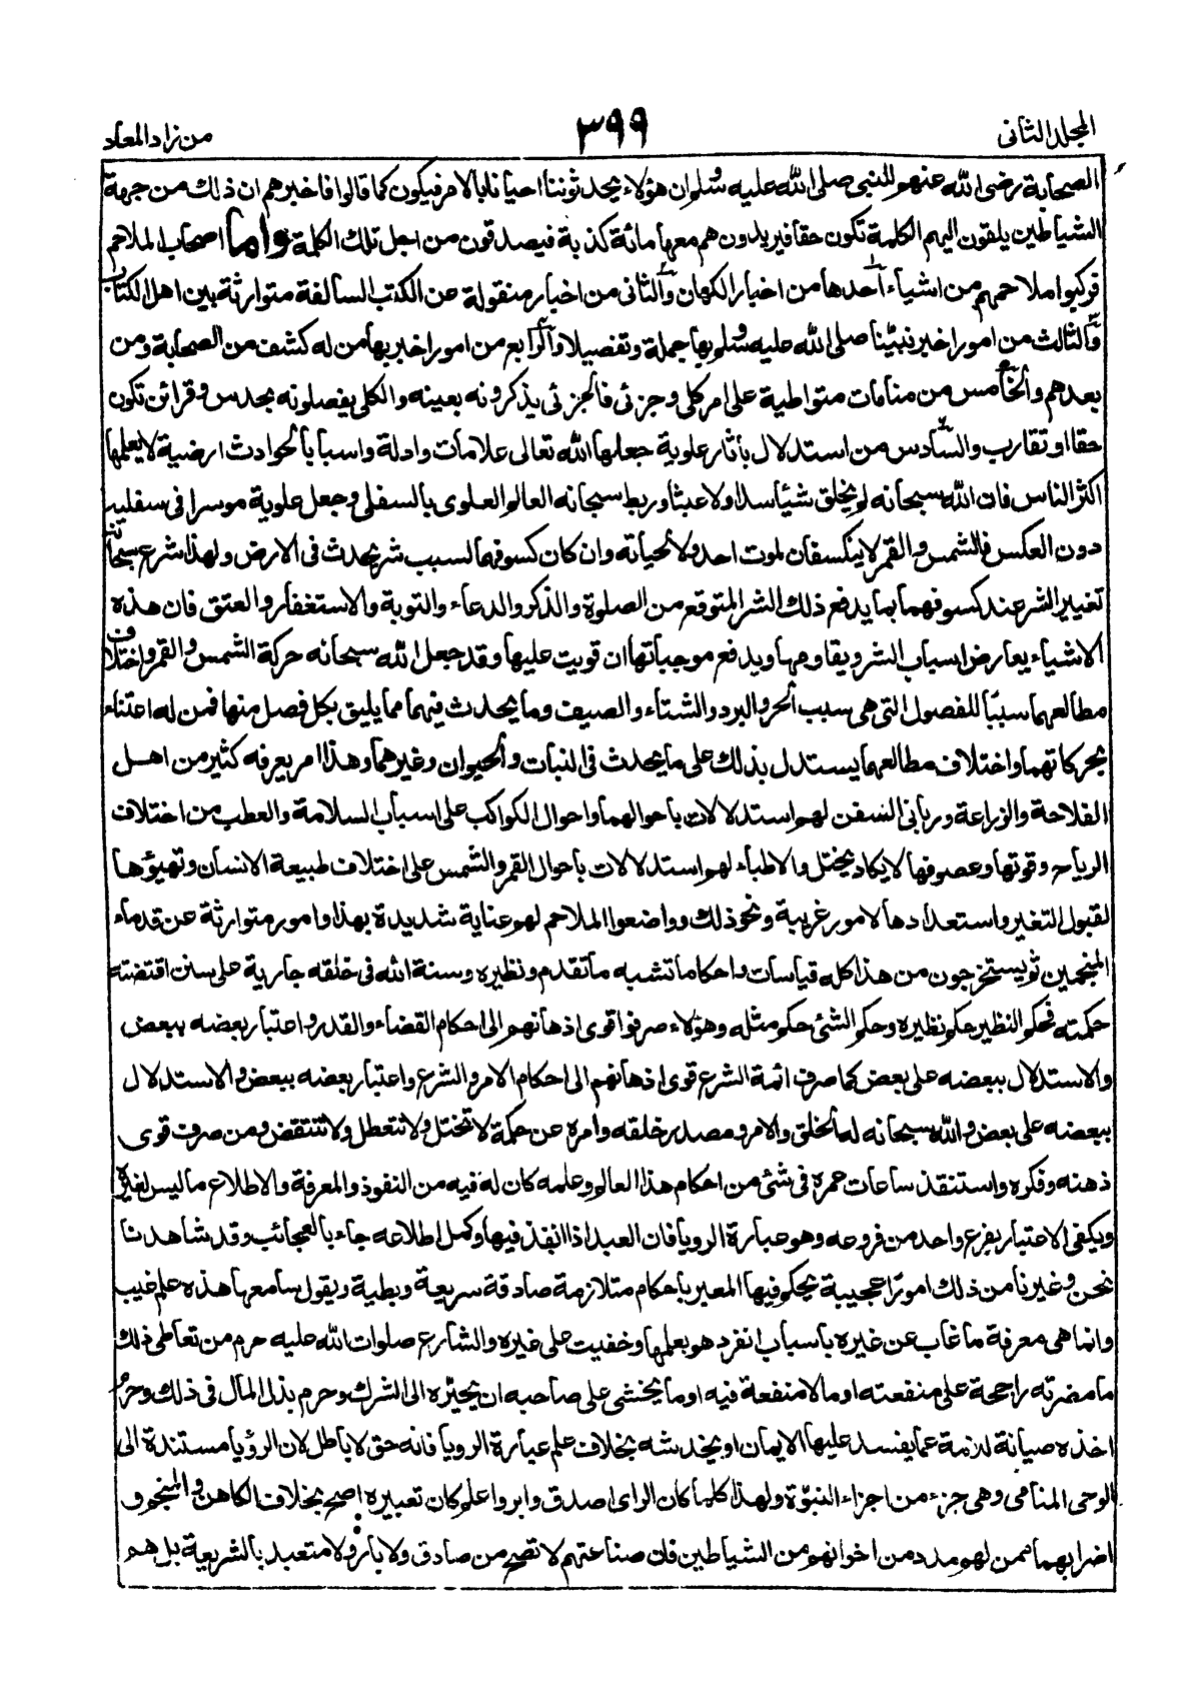 المجلد الثانى
٣٩٩
من زاد المعاد
الصحابة رضى الله عنهم للنبى صلى الله عليه وسلم ان هؤلاء يحدثوننا احيانا بالامر فيكون كما قالوا فاخبرهم ان ذلك من جهة
الشياطين يلقون اليهم الكلمة تكون حقا فيزيدون هم معها مائة كذبة فيصدقون من اجل تلك الكلمة واما اصحاب الملاحم
فركبوا ملاحمهم من اشياء احدها من اخبار الكهان والثانى من اخبار منقولة عن الكتب السالفة متوارثة بين اهل الكتاب
والثالث من امور اخبر نبينا صلى الله عليه وسلم بها جملة وتفصيلا والرابع من امور اخبر بها من له كشف من الصحابة ومن
بعدهم والخامس من منامات متواطية على امر كلى وجزئى فالجزئى يذكرونه بعينه والكلى يفصلونه بحدس وقرائن تكون
حقا او تقارب والسادس من استدلال بآثار علوية جعلها الله تعالى علامات وادلة واسبابا لحوادث ارضية لا يعلمها
اكثر الناس فان الله سبحانه لم يخلق شيئا سدا ولا عبثا وربط سبحانه العالم العلوى بالسفلى وجعل علوية موسرا فى سفليه
دون العكس فالشمس والقمر لا ينكسفان لموت احد ولا لحياته وان كان كسوفهما لسبب شر يحدث فى الارض ولهذا شرع سبحانه
تغيير الشر عند كسوفهما بما يدفع ذلك الشر المتوقع من الصلوة والذكر والدعاء والتوبة والاستغفار والعتق فان هذه
الاشياء يعارض اسباب الشر ويقاومها ويدفع موجباتها ان قويت عليها وقد جعل الله سبحانه حركة الشمس والقمر واختلاف
مطالعهما سببا للفصول التى هى سبب الحر والبرد والشتاء والصيف وما يحدث فيهما مما يليق بكل فصل منها فمن له اعتناء
بحركاتهما واختلاف مطالعهما يستدل بذلك على ما يحدث فى النبات والحيوان وغيرهما وهذا امر يعرفه كثير من اهل
الفلاحة والزراعة وربانى السفن لهم استدلالات باحوالهما واحوال الكواكب على اسباب السلامة والعطب من اختلاف
الرياح وقوتها وعصوفها لا يكاد يختل والاطباء لهم استدلالات باحوال القمر والشمس على اختلاف طبيعة الانسان وتهيؤها
لقبول التغير واستعدادها لامور غريبة ونحو ذلك وواضعوا الملاحم لهم عناية شديدة بهذا وامور متوارثة عن قدماء
المنجمين ثم يستخرجون من هذا كله قياسات واحكاما تشبه ما تقدم ونظيره وسنة الله فى خلقه جارية على سنن اقتضته
حكمته فحكم النظير حكم نظيره وحكم الشئ حكم مثله وهؤلاء صرفوا قوى اذهانهم الى احكام القضاء والقدر واعتبار بعضه ببعض
والاستدلال ببعضه على بعض كما صرف ائمة الشرع قوى اذهانهم الى احكام الامر والشرع واعتبار بعضه ببعض والاستدلال
ببعضه على بعض والله سبحانه له الخلق والامر ومصدر خلقه وامره عن حكمة لا تختل ولا تتعطل ولا تنتقض ومن صرف قوى
ذهنه وفكره واستنفذ ساعات عمره فى شئ من احكام هذا العالم وعلمه كان له فيه من النفوذ والمعرفة والاطلاع ما ليس لغيره
ويكفى الاعتبار بفرع واحد من فروعه وهو عبارة الرويا فان العبد اذا انفذ فيها وكمل اطلاعه جاء بالعجائب وقد شاهدنا
نحن وغيرنا من ذلك امورا عجيبة يحكم فيها المعبر باحكام متلازمة صادقة سريعة وبطية ويقول سامعها هذه علم غيب
وانما هى معرفة ما غاب عن غيره باسباب انفرد هو بعلمها وخفيت على غيره والشارع صلوات الله عليه حرم من تعاطى ذلك
ما مضرته راجحة على منفعته او ما لا منفعة فيه او ما يخشى على صاحبه ان يجيره الى الشرك وحرم بذل المال فى ذلك وحرم
اخذه صيانة للامة عما يفسد عليها الايمان او يخدشه بخلاف علم عبارة الرويا فانه حق لا باطل لان الرؤيا مستندة الى
الوحى المنامى وهى جزء من اجزاء النبوة ولهذا كلما كان الراى اصدق وابر واعلم كان تعبيره اصح بخلاف الكاهن والمنجم و
اضرابهما ممن لهم مدد من اخوانهم من الشياطين فان صناعتهم لا تصح من صادق ولا بار ولا متعبد بالشريعة بل هم